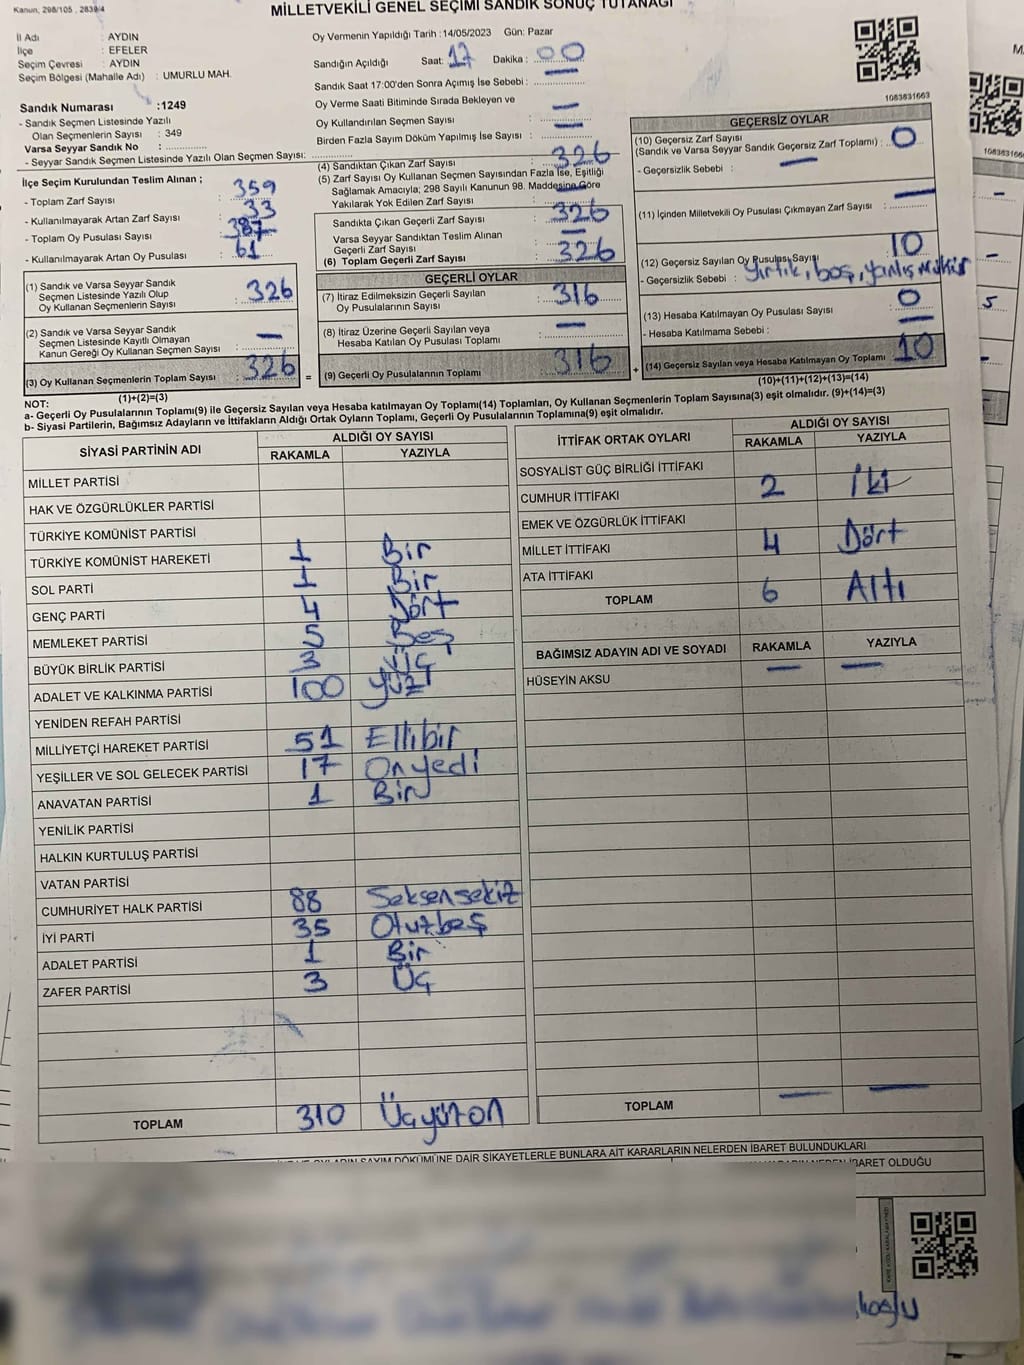 Kanun, 298/105 , 2839/4
MİLLETVEKİLİ GENEL SEÇİMİ SANDIK SONUÇ TUTANAĞI
İl Adı : AYDIN
İlçe : EFELER
Seçim Çevresi : AYDIN
Seçim Bölgesi (Mahalle Adı) : UMURLU MAH.
Oy Vermenin Yapıldığı Tarih :14/05/2023 Gün: Pazar
Sandığın Açıldığı Saat: 17 Dakika : 00
Sandık Saat 17:00'den Sonra Açımış İse Sebebi : —
Oy Verme Saati Bitiminde Sırada Bekleyen ve
Oy Kullandırılan Seçmen Sayısı : —
Birden Fazla Sayım Döküm Yapılmış İse Sayısı : —
1083631663
Sandık Numarası :1249
- Sandık Seçmen Listesinde Yazılı
Olan Seçmenlerin Sayısı : 349
Varsa Seyyar Sandık No :
- Seyyar Sandık Seçmen Listesinde Yazılı Olan Seçmen Sayısı:
İlçe Seçim Kurulundan Teslim Alınan ;
- Toplam Zarf Sayısı : 359
- Kullanılmayarak Artan Zarf Sayısı : 33
- Toplam Oy Pusulası Sayısı : 387
- Kullanılmayarak Artan Oy Pusulası : 61
(1) Sandık ve Varsa Seyyar Sandık
Seçmen Listesinde Yazılı Olup
Oy Kullanan Seçmenlerin Sayısı : 326
(2) Sandık ve Varsa Seyyar Sandık
Seçmen Listesinde Kayıtlı Olmayan
Kanun Gereği Oy Kullanan Seçmen Sayısı : —
(3) Oy Kullanan Seçmenlerin Toplam Sayısı : 326
(1)+(2)=(3)
(4) Sandıktan Çıkan Zarf Sayısı : 326
(5) Zarf Sayısı Oy Kullanan Seçmen Sayısından Fazla İse, Eşitliği
Sağlamak Amacıyla; 298 Sayılı Kanunun 98. Maddesine Göre
Yakılarak Yok Edilen Zarf Sayısı : —
Sandıkta Çıkan Geçerli Zarf Sayısı : 326
Varsa Seyyar Sandıktan Teslim Alınan
Geçerli Zarf Sayısı : —
(6) Toplam Geçerli Zarf Sayısı : 326
GEÇERLİ OYLAR
(7) İtiraz Edilmeksizin Geçerli Sayılan
Oy Pusulalarının Sayısı : 316
(8) İtiraz Üzerine Geçerli Sayılan veya
Hesaba Katılan Oy Pusulası Toplamı : —
= (9) Geçerli Oy Pusulalarının Toplamı : 316
GEÇERSİZ OYLAR
(10) Geçersiz Zarf Sayısı
(Sandık ve Varsa Seyyar Sandık Geçersiz Zarf Toplamı) : 0
- Geçersizlik Sebebi : —
(11) İçinden Milletvekili Oy Pusulası Çıkmayan Zarf Sayısı : —
(12) Geçersiz Sayılan Oy Pusulası Sayısı : 10
- Geçersizlik Sebebi : Yırtık, boş, yanlış mühür
(13) Hesaba Katılmayan Oy Pusulası Sayısı : 0
- Hesaba Katılmama Sebebi : —
+ (14) Geçersiz Sayılan veya Hesaba Katılmayan Oy Toplamı : 10
(10)+(11)+(12)+(13)=(14)
NOT:
a- Geçerli Oy Pusulalarının Toplamı(9) ile Geçersiz Sayılan veya Hesaba katılmayan Oy Toplamı(14) Toplamları, Oy Kullanan Seçmenlerin Toplam Sayısına(3) eşit olmalıdır. (9)+(14)=(3)
b- Siyasi Partilerin, Bağımsız Adayların ve İttifakların Aldığı Ortak Oyların Toplamı, Geçerli Oy Pusulalarının Toplamına(9) eşit olmalıdır.
SİYASİ PARTİNİN ADI ALDIĞI OY SAYISI
RAKAMLA YAZIYLA
MİLLET PARTİSİ
HAK VE ÖZGÜRLÜKLER PARTİSİ
TÜRKİYE KOMÜNİST PARTİSİ
TÜRKİYE KOMÜNİST HAREKETİ 1 Bir
SOL PARTİ 1 Bir
GENÇ PARTİ 4 Dört
MEMLEKET PARTİSİ 5 Beş
BÜYÜK BİRLİK PARTİSİ 3 Üç
ADALET VE KALKINMA PARTİSİ 100 Yüz
YENİDEN REFAH PARTİSİ
MİLLİYETÇİ HAREKET PARTİSİ 51 Ellibir
YEŞİLLER VE SOL GELECEK PARTİSİ 17 Onyedi
ANAVATAN PARTİSİ 1 Bir
YENİLİK PARTİSİ
HALKIN KURTULUŞ PARTİSİ
VATAN PARTİSİ
CUMHURİYET HALK PARTİSİ 88 Seksensekiz
İYİ PARTİ 35 Otuzbeş
ADALET PARTİSİ 1 Bir
ZAFER PARTİSİ 3 Üç
TOPLAM 310 Üçyüzon
İTTİFAK ORTAK OYLARI ALDIĞI OY SAYISI
RAKAMLA YAZIYLA
SOSYALİST GÜÇ BİRLİĞİ İTTİFAKI
CUMHUR İTTİFAKI 2 İki
EMEK VE ÖZGÜRLÜK İTTİFAKI
MİLLET İTTİFAKI 4 Dört
ATA İTTİFAKI
TOPLAM 6 Altı
BAĞIMSIZ ADAYIN ADI VE SOYADI RAKAMLA YAZIYLA
HÜSEYİN AKSU — —
TOPLAM — —
SAYIM DÖKÜMÜNE DAİR ŞİKAYETLERLE BUNLARA AİT KARARLARIN NELERDEN İBARET BULUNDUKLARI
İBARET OLDUĞU